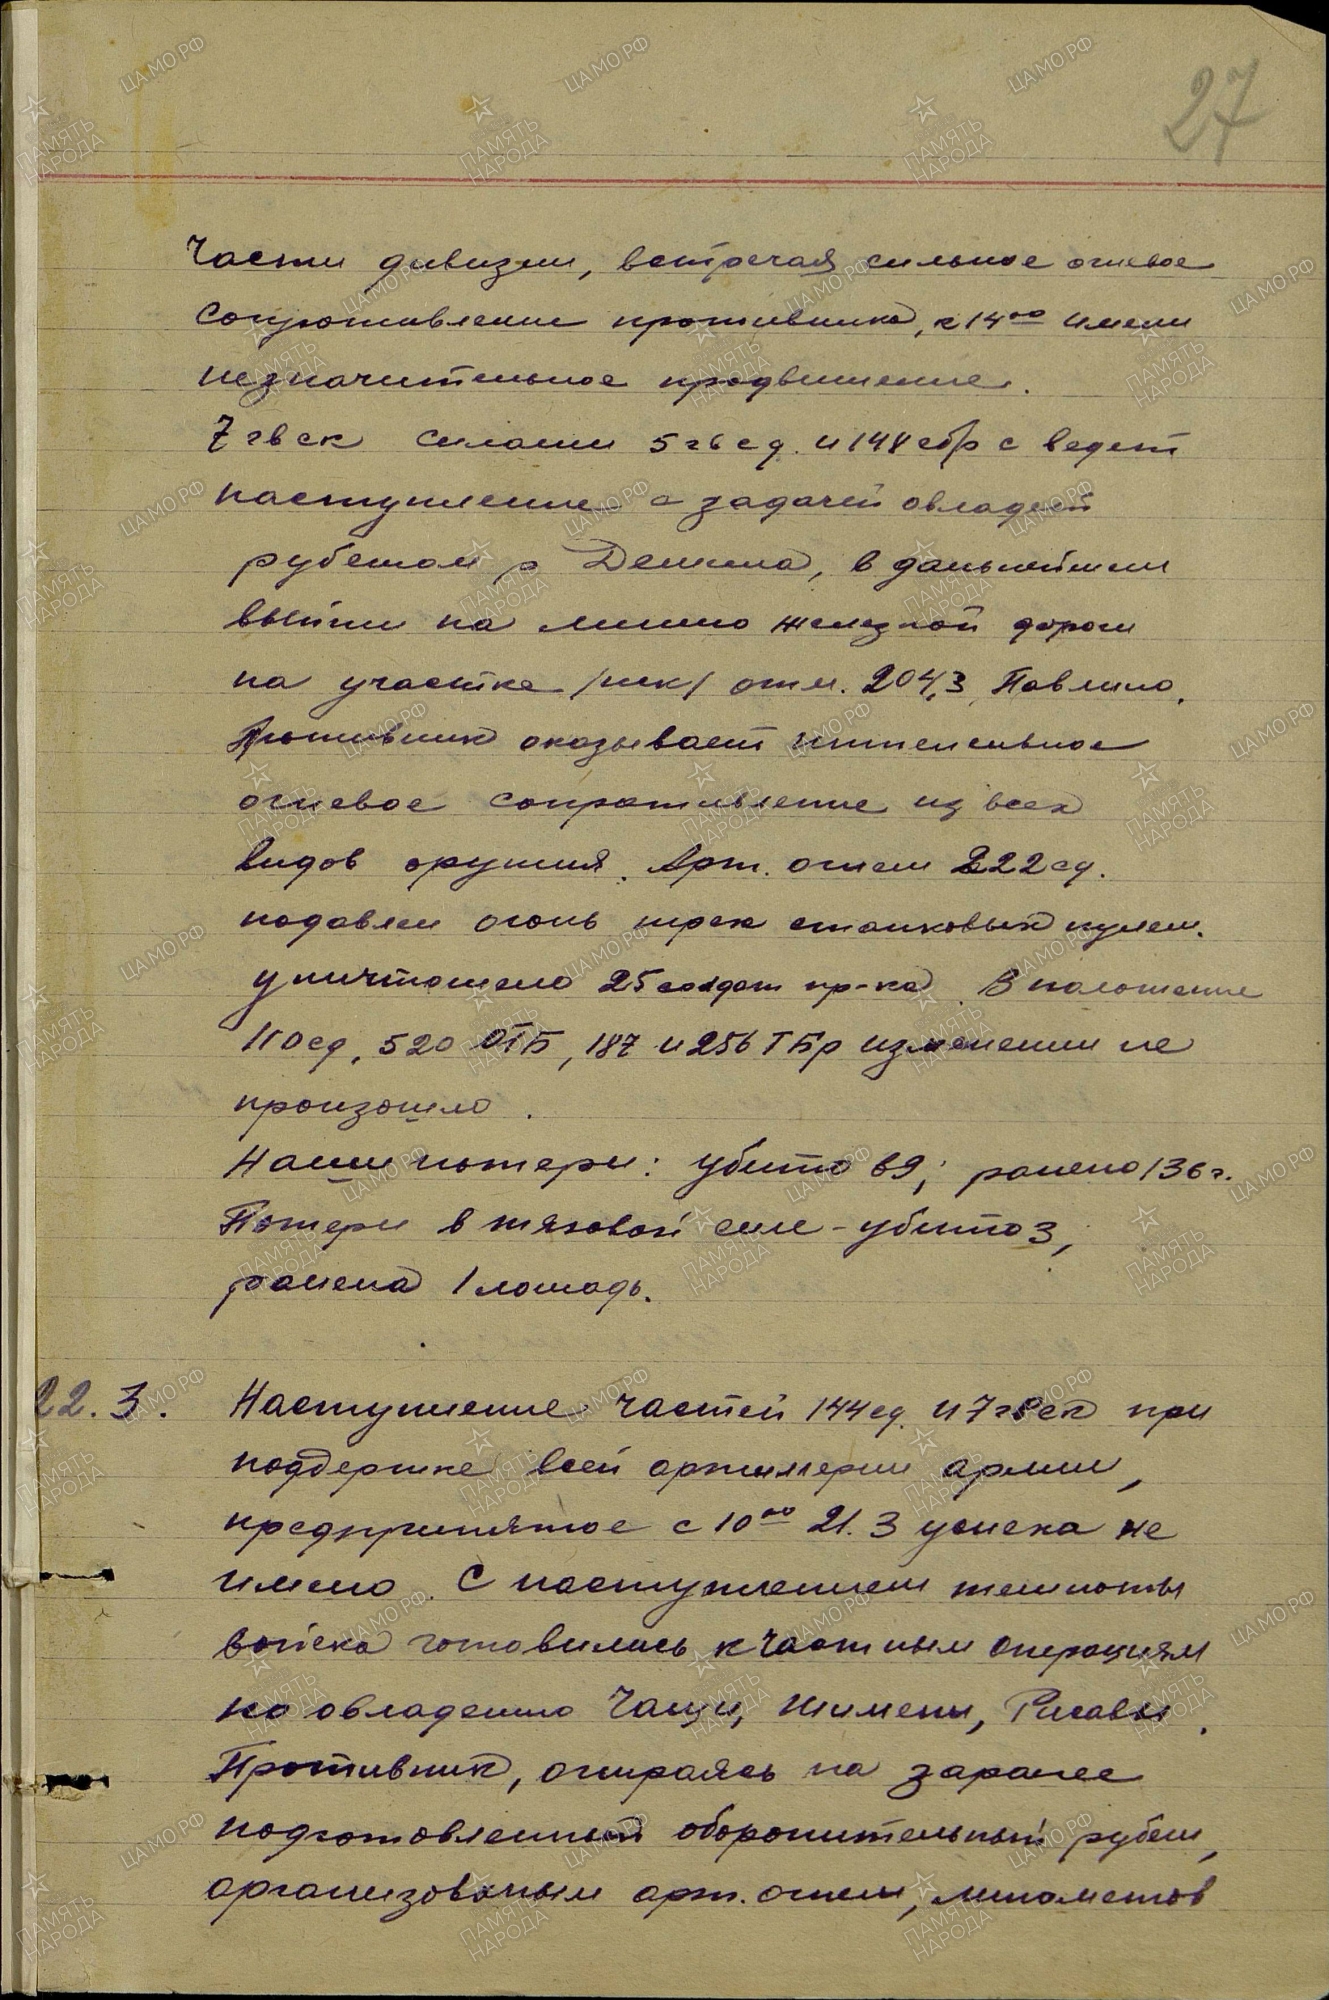 27
Части дивизии, встречая сильное огневое
сопротивление противника, к 14 00 имели
незначительное продвижение.
7 гв ск силами 5 гв сд. и 148 сбр с ведет
наступление с задачей овладеть
рубежом р Демина, в дальнейшем
выйти на линию железной дороги
на участке /иск/ отм. 204,3, Павлино.
Противник оказывает интенсивное
огневое сопротивление из всех
видов оружия. Арт. огнем 222 сд.
подавлен огонь трех станковых пулем.
уничтожено 25 солдат пр-ка. В положение
110 сд, 520 ОТБ, 187 и 256 ТБр изменении не
произошло.
Наши потери: убито 69; ранено 136 ч.
Потери в тяговой силе - убито 3,
ранена 1 лошадь.
22.3. Наступление частей 144 сд. и 7 гв ск при
поддержке всей артиллерии армии,
предпринятое с 10 00 21.3 успеха не
имело. С наступлением темноты
войска готовились к частным операциям
по овладению Чащи, Жимены, Рисавы.
Противник, опираясь на заранее
подготовленный оборонительный рубеж,
организованым арт. огнем, минометов